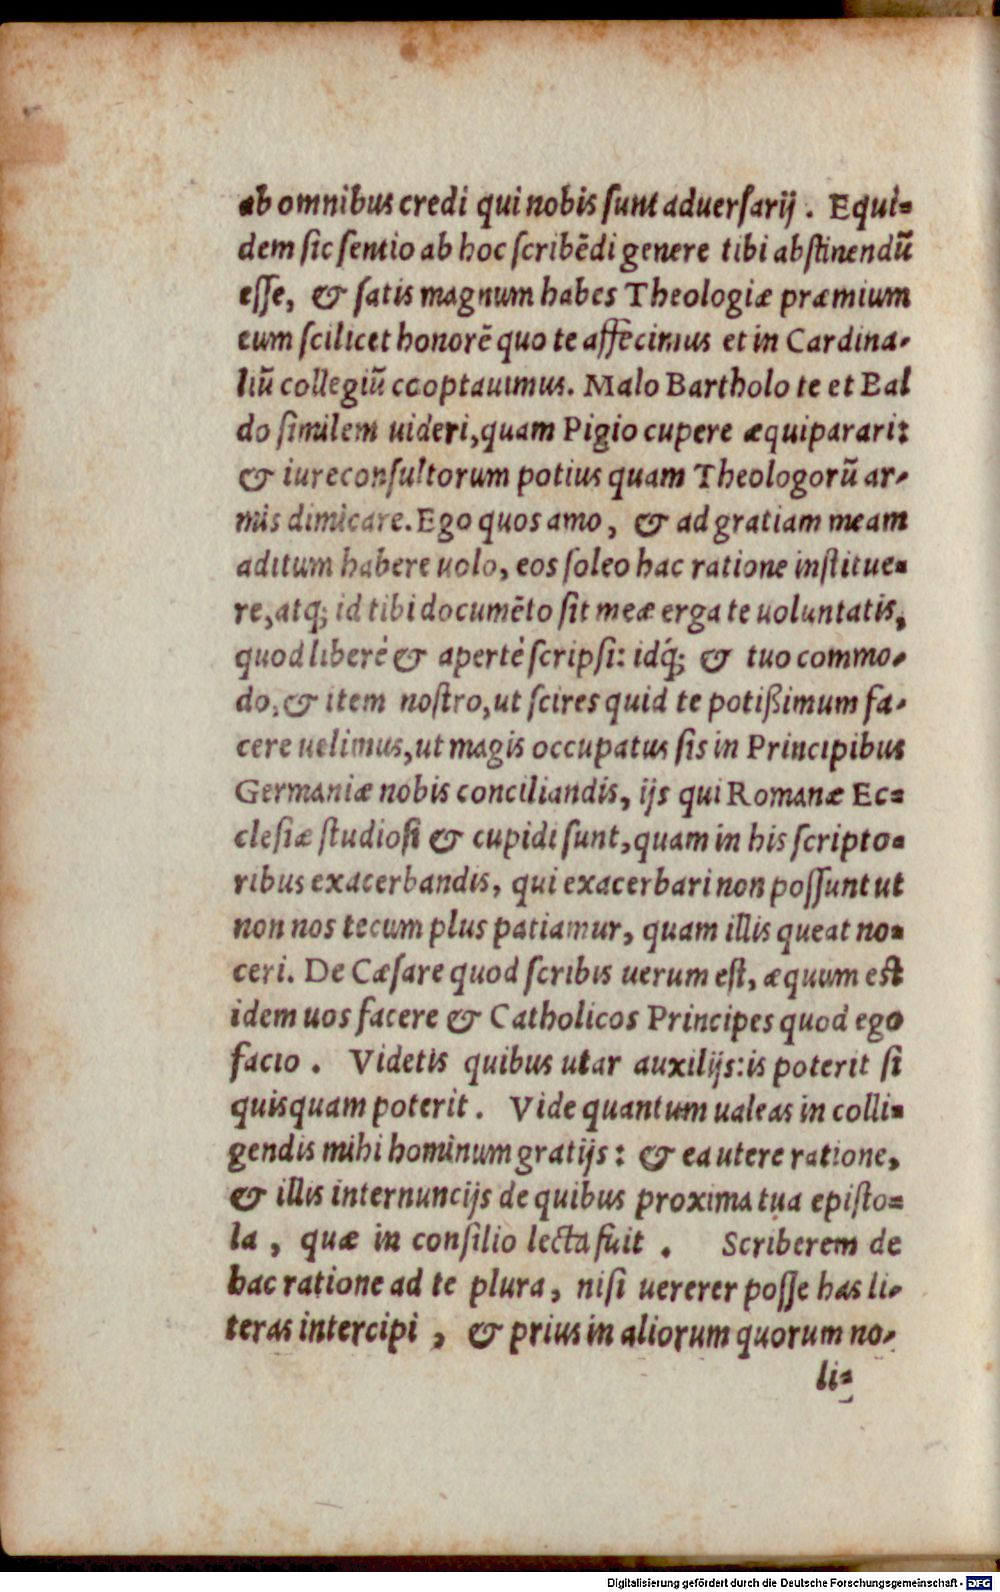 ab omnibus credi qui nobis sunt aduersarij. Equi-
dem sic sentio ab hoc scribēdi genere tibi abstinendū
esse, & satis magnum habes Theologiæ præmium
eum scilicet honorē quo te affecimus et in Cardina-
liū collegiū cooptauimus. Malo Bartholo te et Bal
do similem uideri, quam Pigio cupere æquiparari:
& iureconsultorum potius quam Theologorū ar-
mis dimicare. Ego quos amo, & ad gratiam meam
aditum habere uolo, eos soleo hac ratione instítue-
re, atq; id tibi documēto sit meæ erga te uoluntatis,
quod liberè & apertè scripsi: idq́; & tuo commo-
do, & item nostro, ut scires quid te potißimum fa-
cere uelimus, ut magis occupatus sis in Principibus
Germaniæ nobis conciliandis, ijs qui Romanæ Ec-
clesiæ studiosi & cupidi sunt, quam in his scripto-
ribus exacerbandis, qui exacerbari non possunt ut
non nos tecum plus patiamur, quam illis queat no-
ceri. De Cæsare quod scribis uerum est, æquum est
idem uos facere & Catholicos Principes quod ego
facio. Videtis quibus utar auxilijs: is poterit si
quisquam poterit. Vide quantum ualeas in colli-
gendis mihi hominum gratijs: & ea utere ratione,
& illis internuncijs de quibus proxima tua episto-
la, quæ in consilio lecta fuit. Scriberem de
hac ratione ad te plura, nisi uererer posse has li-
teras intercipi, & prius in aliorum quorum no-
li-
Digitalisierung gefördert durch die Deutsche Forschungsgemeinschaft - DFG